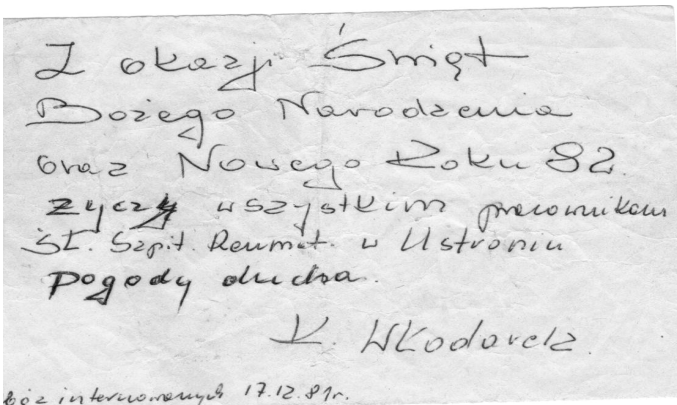 Z okazji Świąt
Bożego Narodzenia
oraz Nowego Roku 82.
życzy wszystkim pracownikom
Śl. Szpit. Reumat. w Ustroniu
Pogody ducha.
K. Włodarcz.
obóz internowanych 17.12.81r.